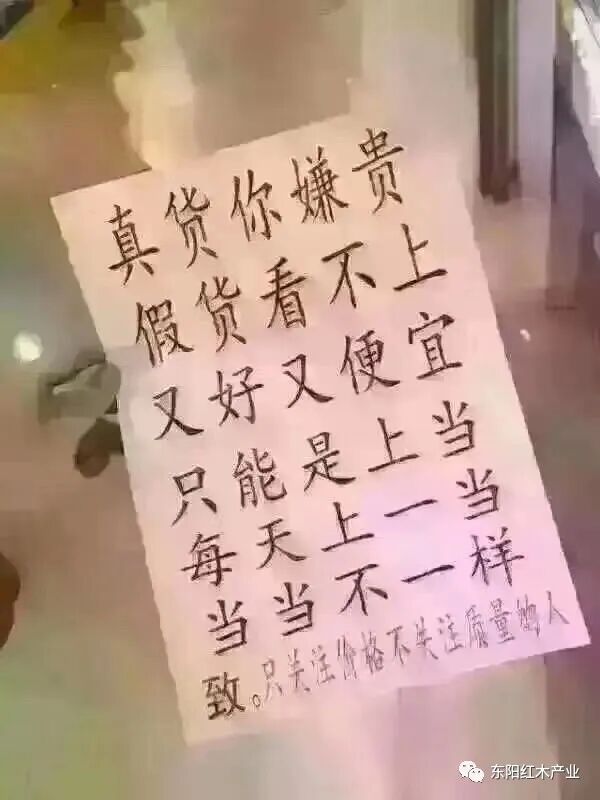 真货你嫌贵
假货看不上
又好又便宜
只能是上当
每天上一当
当当不一样
致。只关注价格不关注质量的人
东阳红木产业